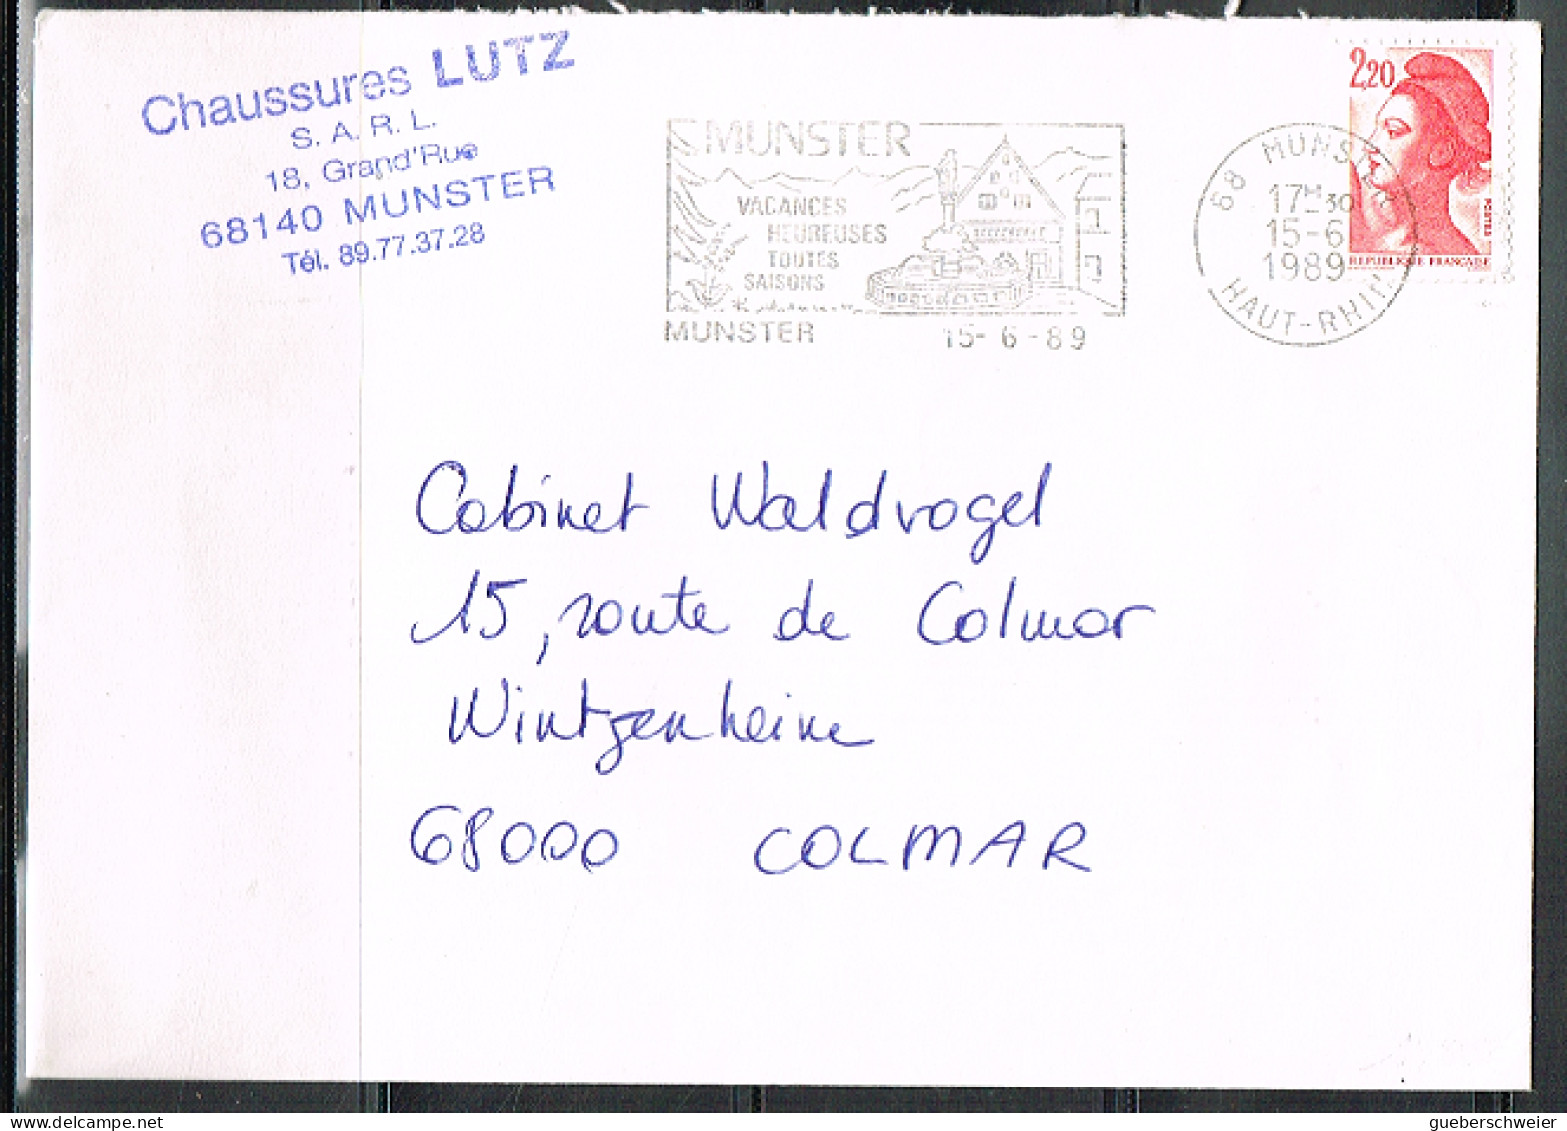 Chaussures LUTZ
S. A. R. L.
18, Grand'Rue
68140 MUNSTER
Tél. 89.77.37.28
MUNSTER
VACANCES
HEUREUSES
TOUTES
SAISONS
MUNSTER 15-6-89
68 MUNSTER
17H30
15-6
1989
HAUT-RHIN
2,20
POSTES
REPUBLIQUE FRANÇAISE
Cabinet Waldvogel
15, route de Colmar
Wintzenheim
68000 COLMAR
gueberschweier